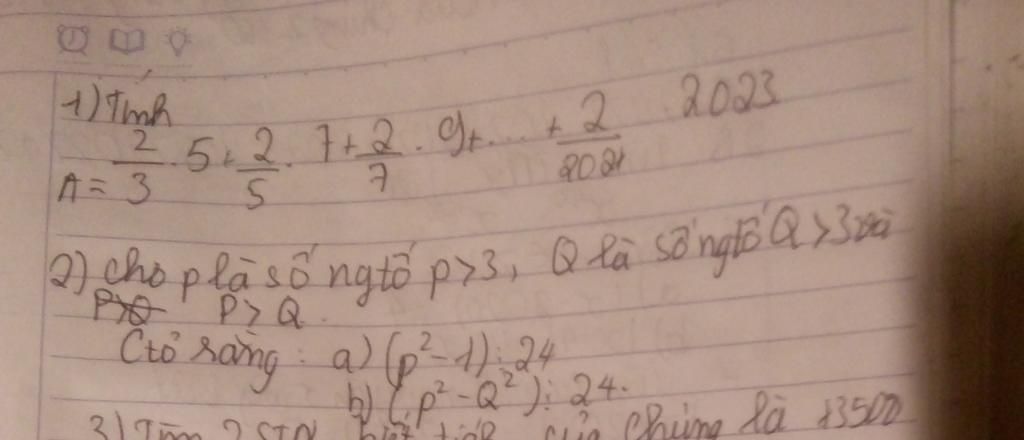 1) Tính
A = 2/3 . 5 + 2/5 . 7 + 2/7 . 9 + ... + 2/2021 2023
2) cho p là số ngtố p > 3, Q là số ngtố Q > 3 và
P>Q P > Q.
Ctỏ rằng: a) (p² - 1) ⋮ 24
b) (p² - Q²) ⋮ 24.
3) Tìm 2 STN biết tích của chúng là 13500